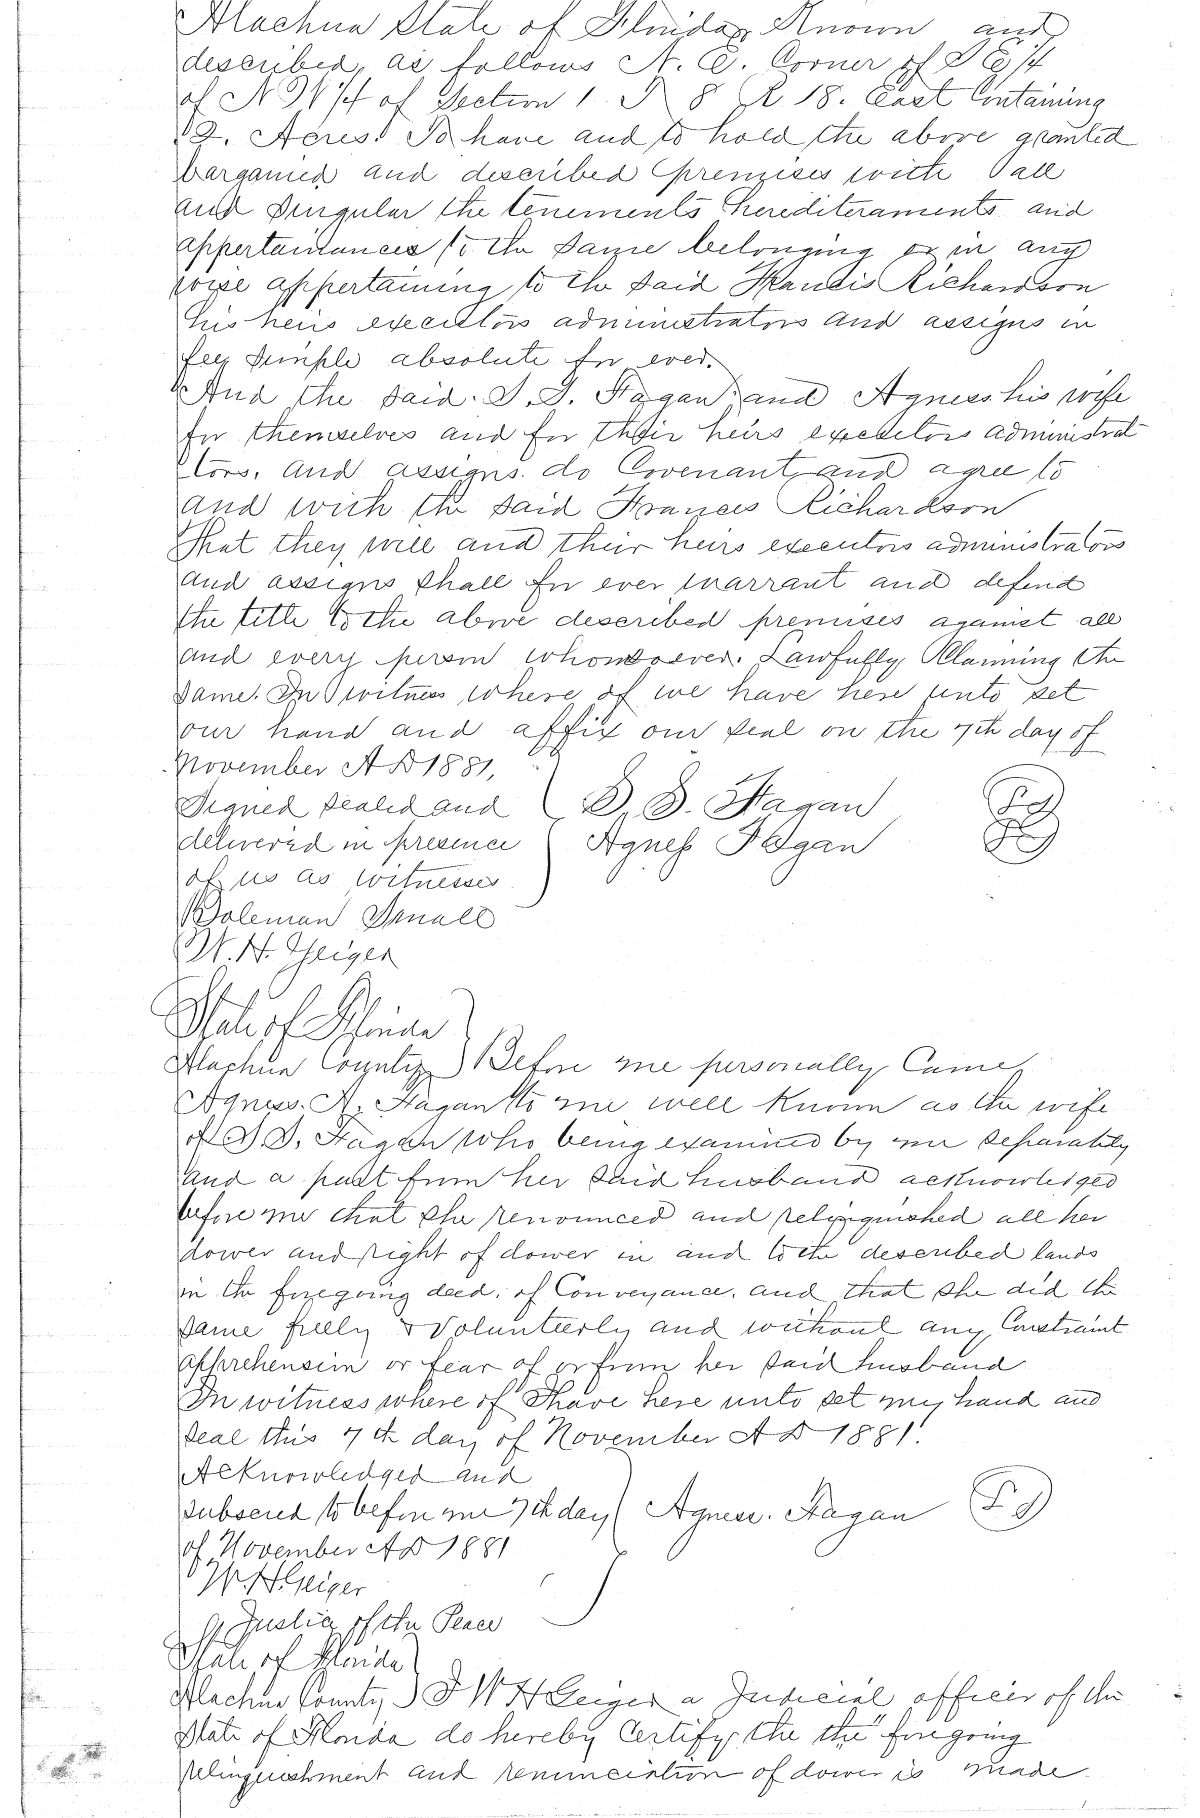 Alachua State of Florida Known and
described, as follows N. E. Corner of S E/4
of N W/4 of Section 1 T 8 R 18. East Containing
12. Acres. To have and to hold the above granted
bargained and described premises with all
and Singular the tenements herediteraments and
appertaintances to the same belonging or in any
wise appertaining to the said Francis Richardson
his heirs executors administrators and assigns in
fee Simple absolute for ever.
And the said. S. S. Hagan and Agness his wife
for themselves and for their heirs executors administrat
tors. and assigns. do Covenant and agree to
and with the said Frances Richardson
That they will and their heirs executors administrators
and assigns shall for ever warrant and defend
the title to the above described premises against all
and every person whomsoever. Lawfully Claiming the
same. In witness where of we have here unto set
our hand and affix our seal on the 7th day of
November A D 1881,
Signed sealed and S. S. Hagan
delivered in presence Agness Hagan
of us as witnesses
Coleman Small
W. H. Geiger
State of Florida
Alachua County Before me personally Came
Agness. A. Hagan to me well Known as the wife
of S S. Hagan who being examined by me separately
and a part from her said husband acknowledged
before me that she renounced and relinquished all her
dower and right of dower in and to the described lands
in the foregoing deed. of Conveyance. and that she did the
same freely & Volunteerly and without any Constraint
apprehension or fear of or from her said husband
In witness where of I have here unto set my hand and
seal this 7th day of November A D 1881.
Acknowledged and
subscred to before me 7th day Agness. Hagan
of November A D 1881
W. H. Geiger
Justice of the Peace
State of Florida
Alachua County I W H Geiger a Judicial officer of the
State of Florida do hereby Certify the the foregoing
relinquishment and renunciation of dower is made